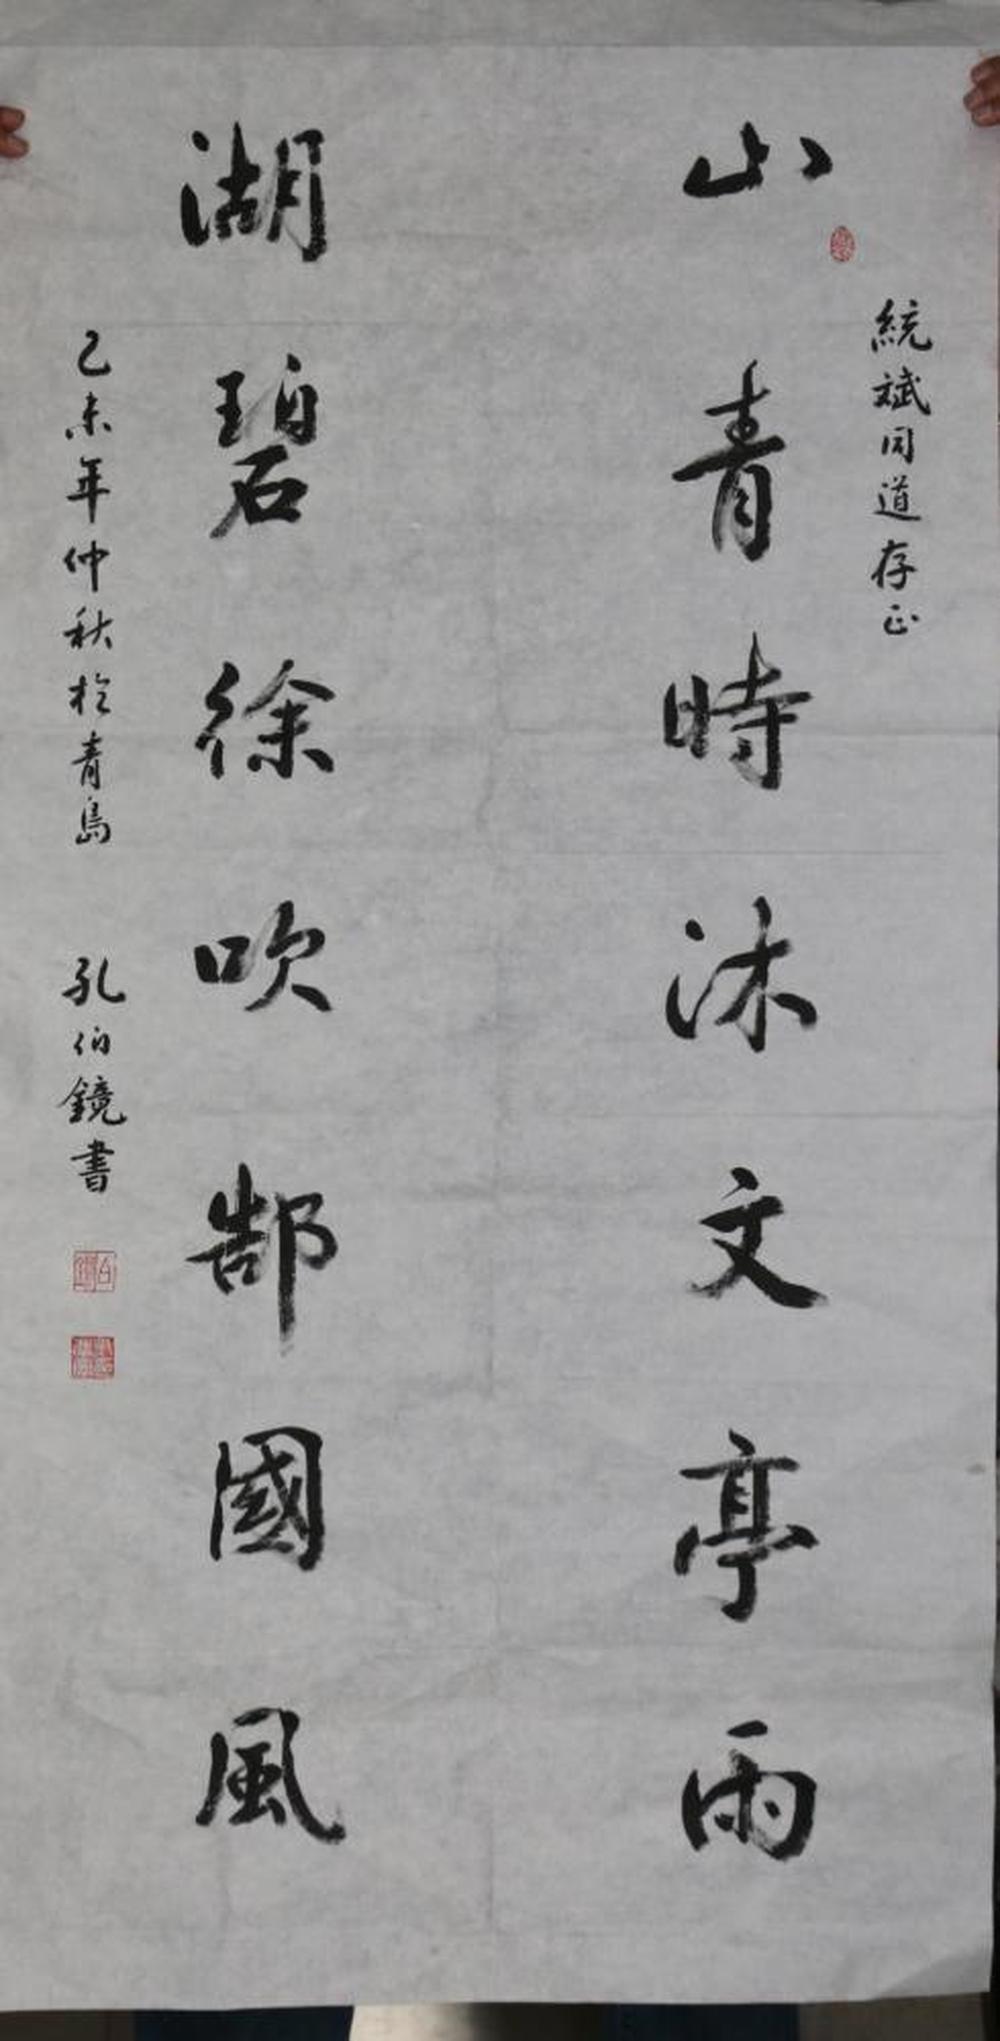 統斌同道存正
山青時沐文亭雨
湖碧徐吹郜國風
乙未年仲秋於青島 孔伯鏡書